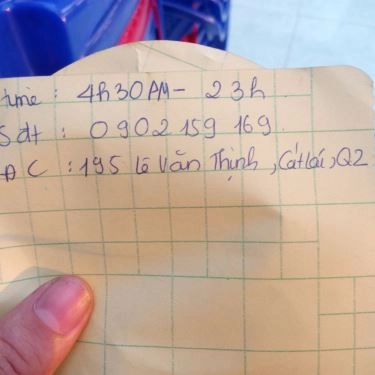 time: 4h30AM - 23h
Sdt: 0902 159 169.
ĐC: 195 Lê Văn Thịnh, Cát Lái, Q2